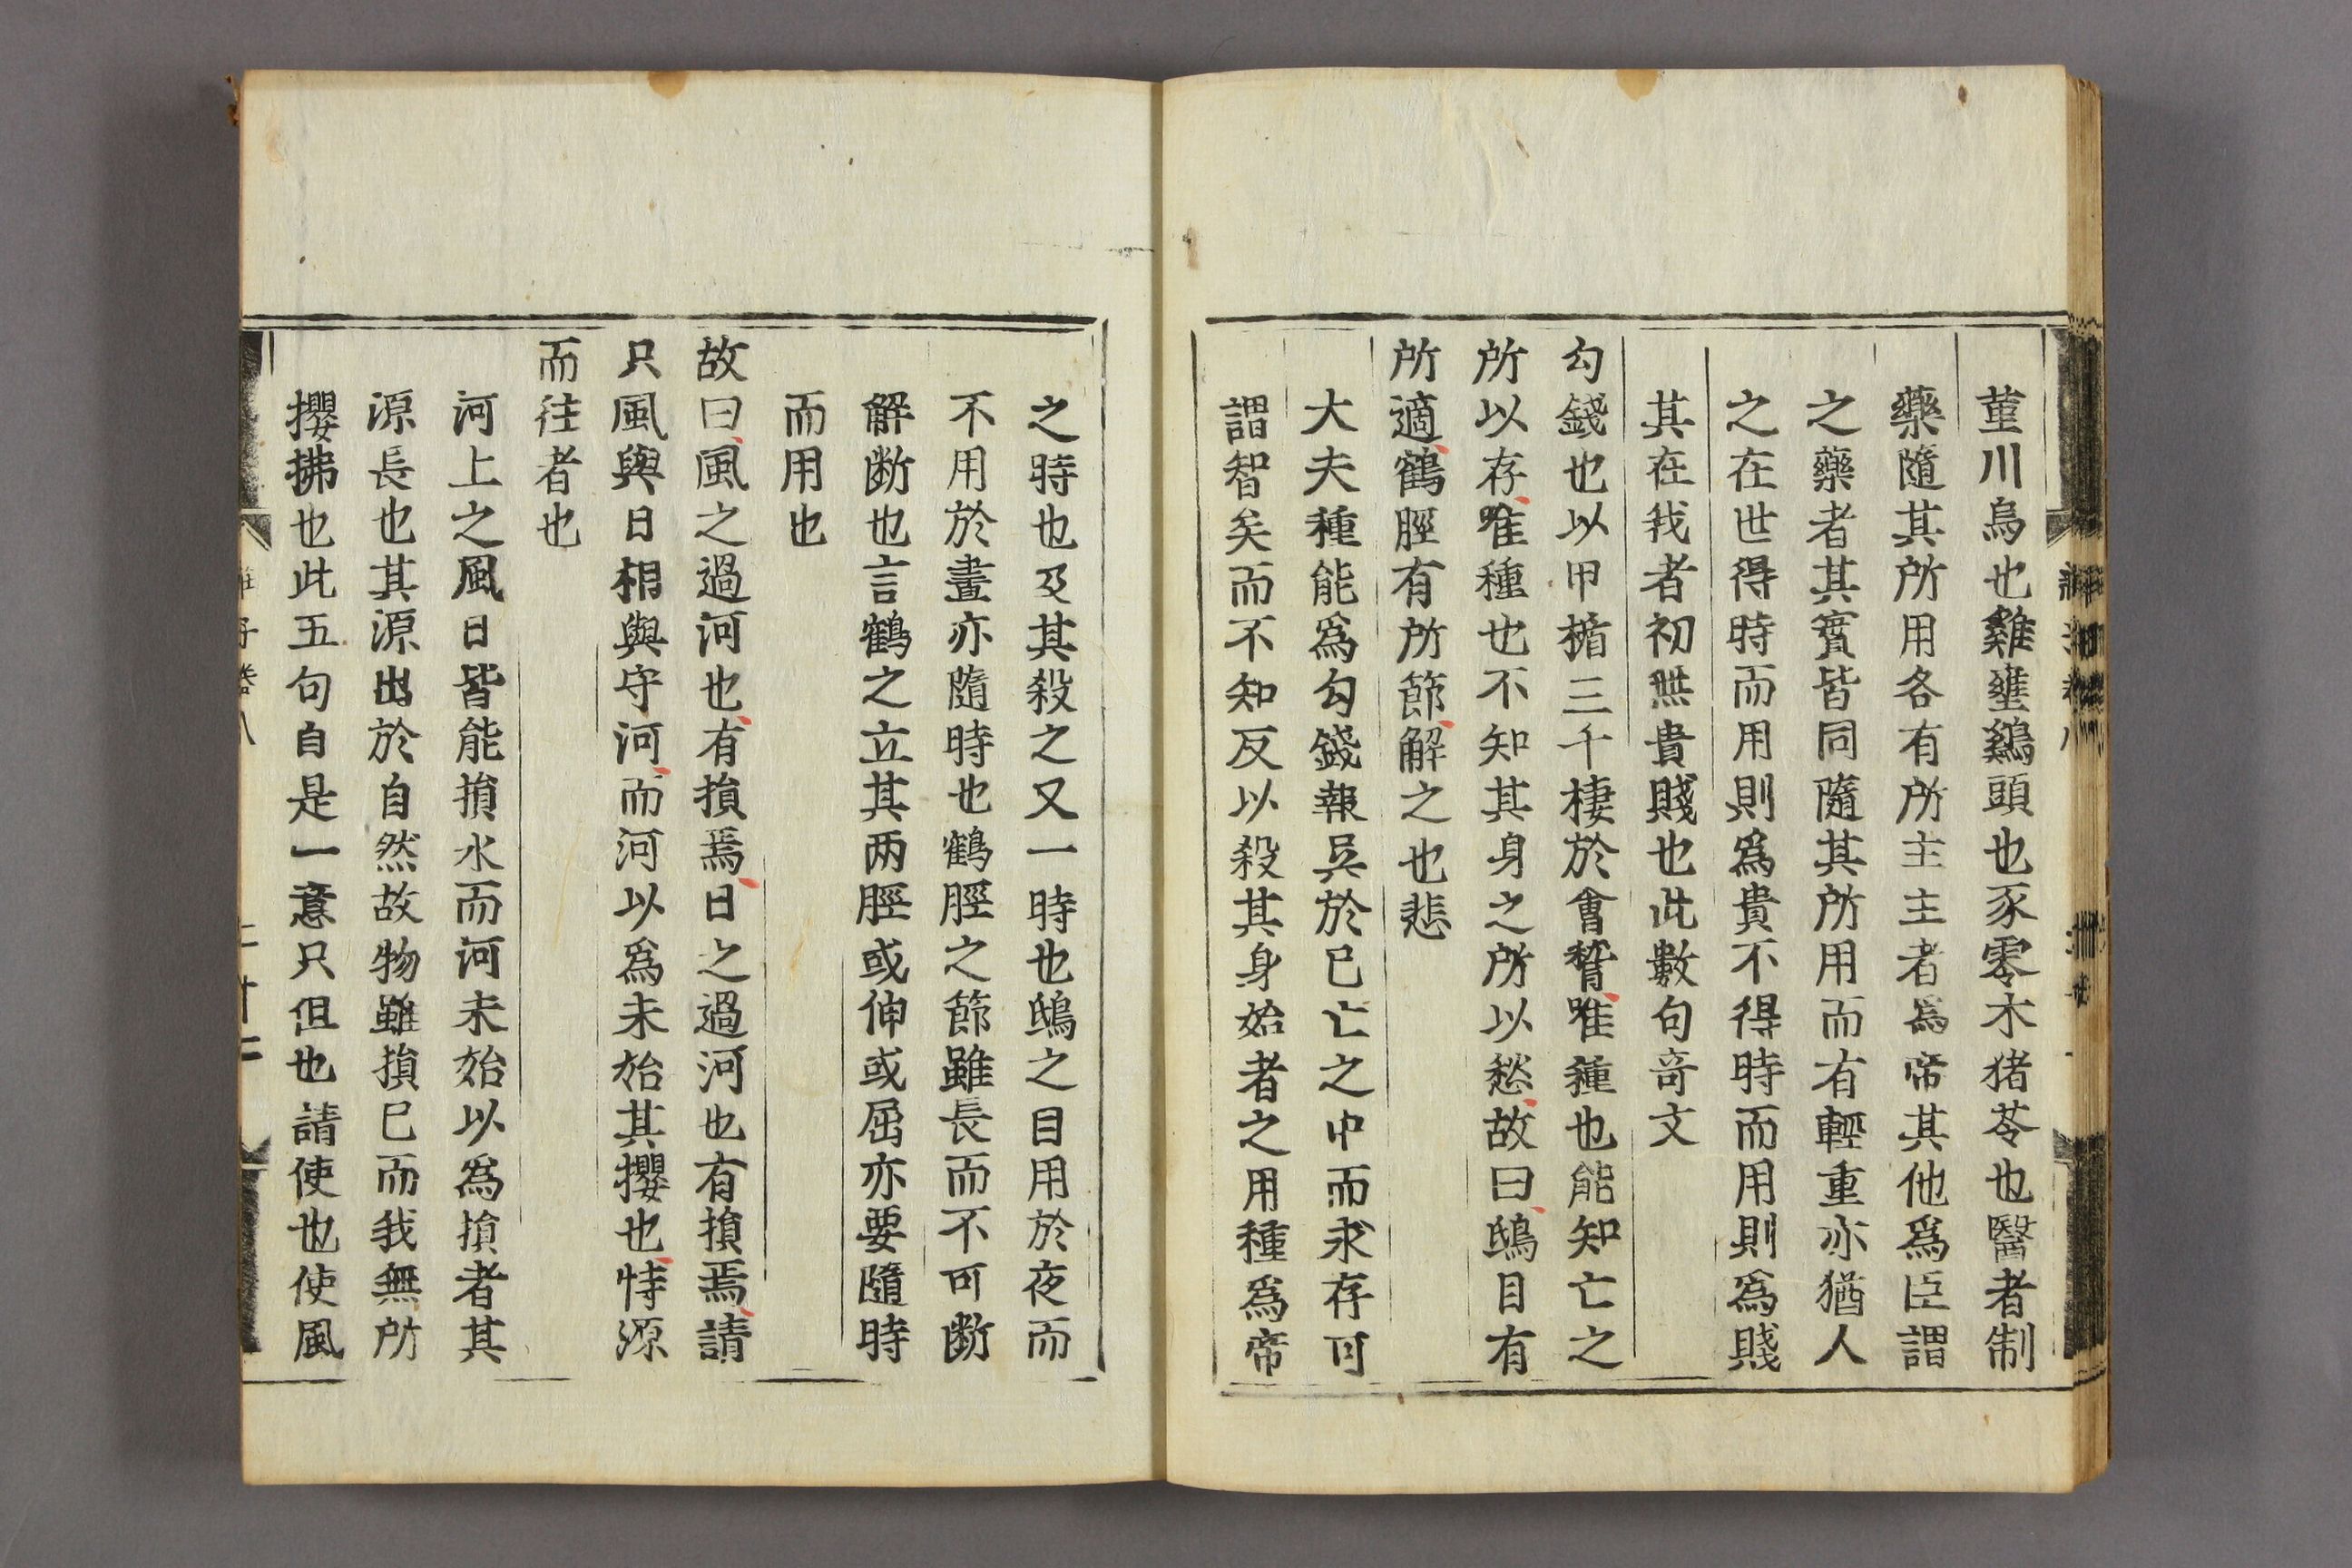 菫川烏也雞壅鷄頭也豕零木猪苓也醫者制
藥隨其所用各有所主主者爲帝其他爲臣謂
之藥者其實皆同隨其所用而有輕重亦猶人
之在世得時而用則爲貴不得時而用則爲賤
其在我者初無貴賤也此數句竒文
勾錢也以甲楯三千棲於會稽唯種也能知亡之
所以存唯種也不知其身之所以愁故曰鴟目有
所適鶴脛有所節解之也悲
大夫種能爲勾錢報吳於已亡之中而求存可
謂智矣而不知反以殺其身始者之用種爲帝
之時也及其殺之又一時也鴟之目用於夜而
不用於晝亦隨時也鶴脛之節雖長而不可断
解断也言鶴之立其两脛或伸或屈亦要隨時
而用也
故曰風之過河也有損焉日之過河也有損焉請
只風與日相與守河而河以爲未始其攖也恃源
而往者也
河上之風日皆能損水而河未始以爲損者其
源長也其源出於自然故物雖損已而我無所
攖拂也此五句自是一意只但也請使也使風
莊子卷八